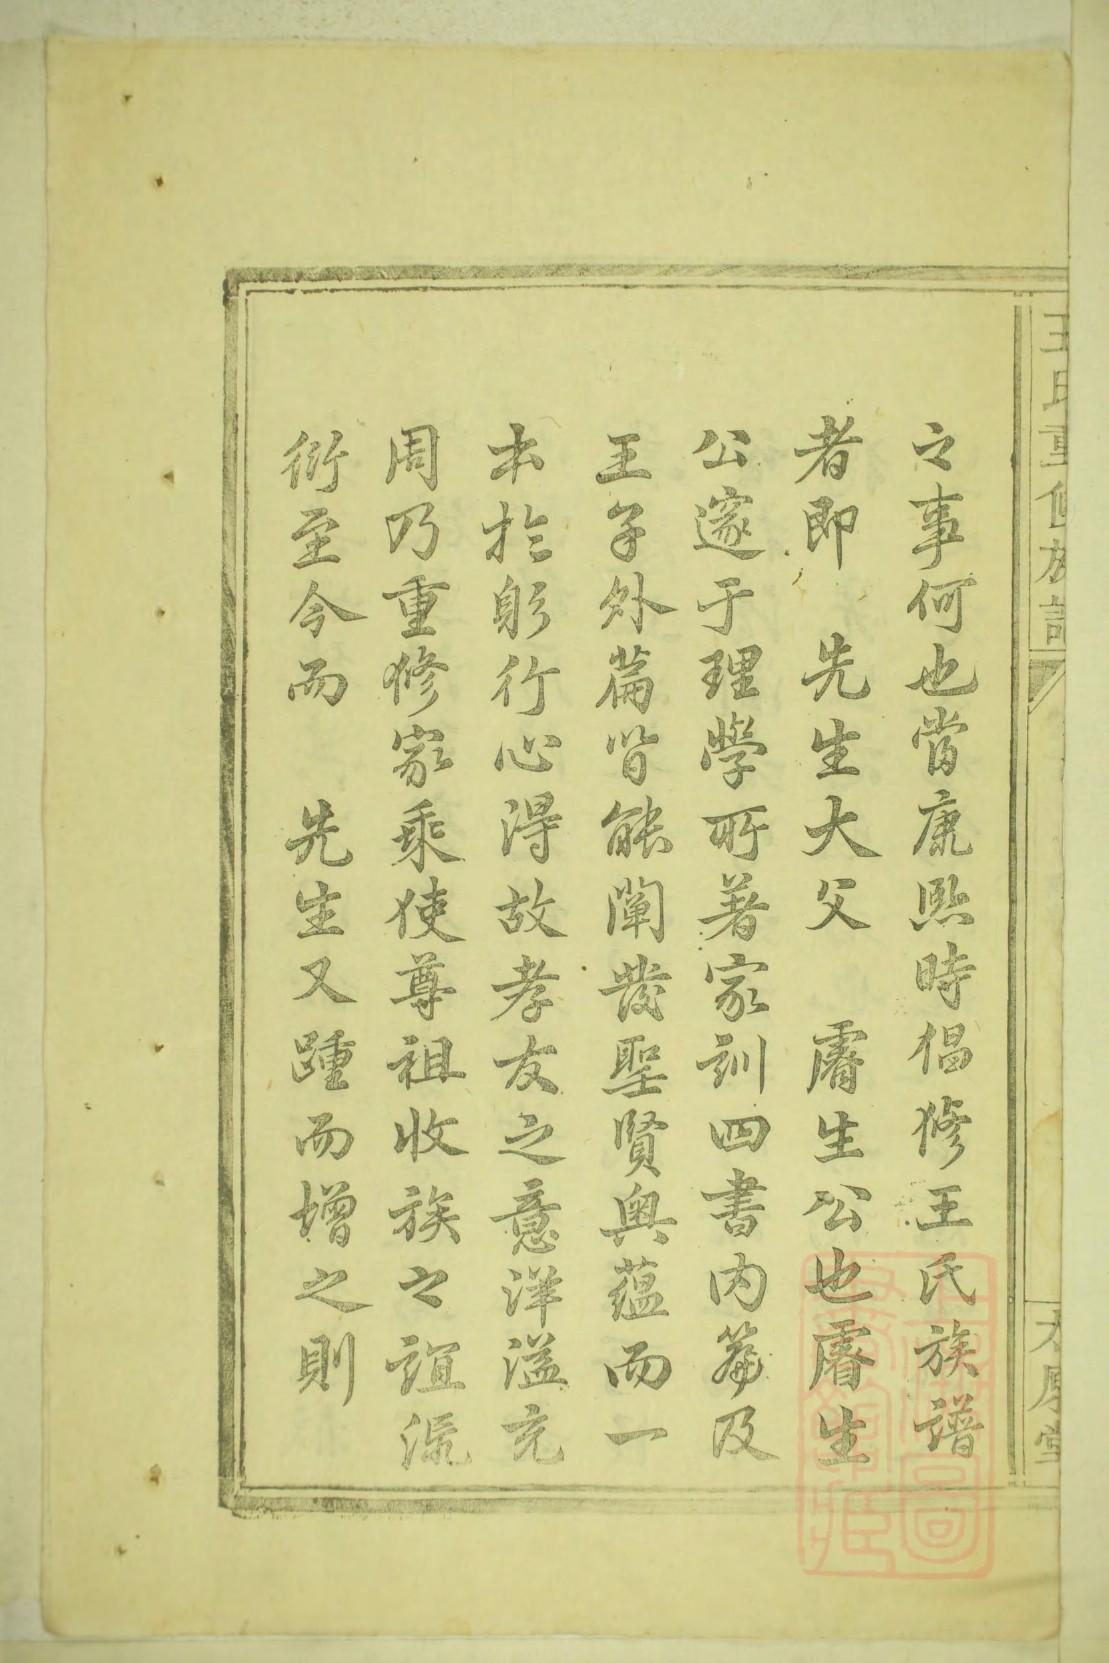 王氏重修族譜
太原堂
之事何也當康熙時倡修王氏族譜
者即　先生大父　睿生公也睿生
公邃于理學所著家訓四書內篇及
王子外篇皆能闡發聖賢奥蘊而一
本於躬行心得故孝友之意洋溢充
周乃重修家乘使尊祖收族之誼流
衍至今而　先生又踵而增之則